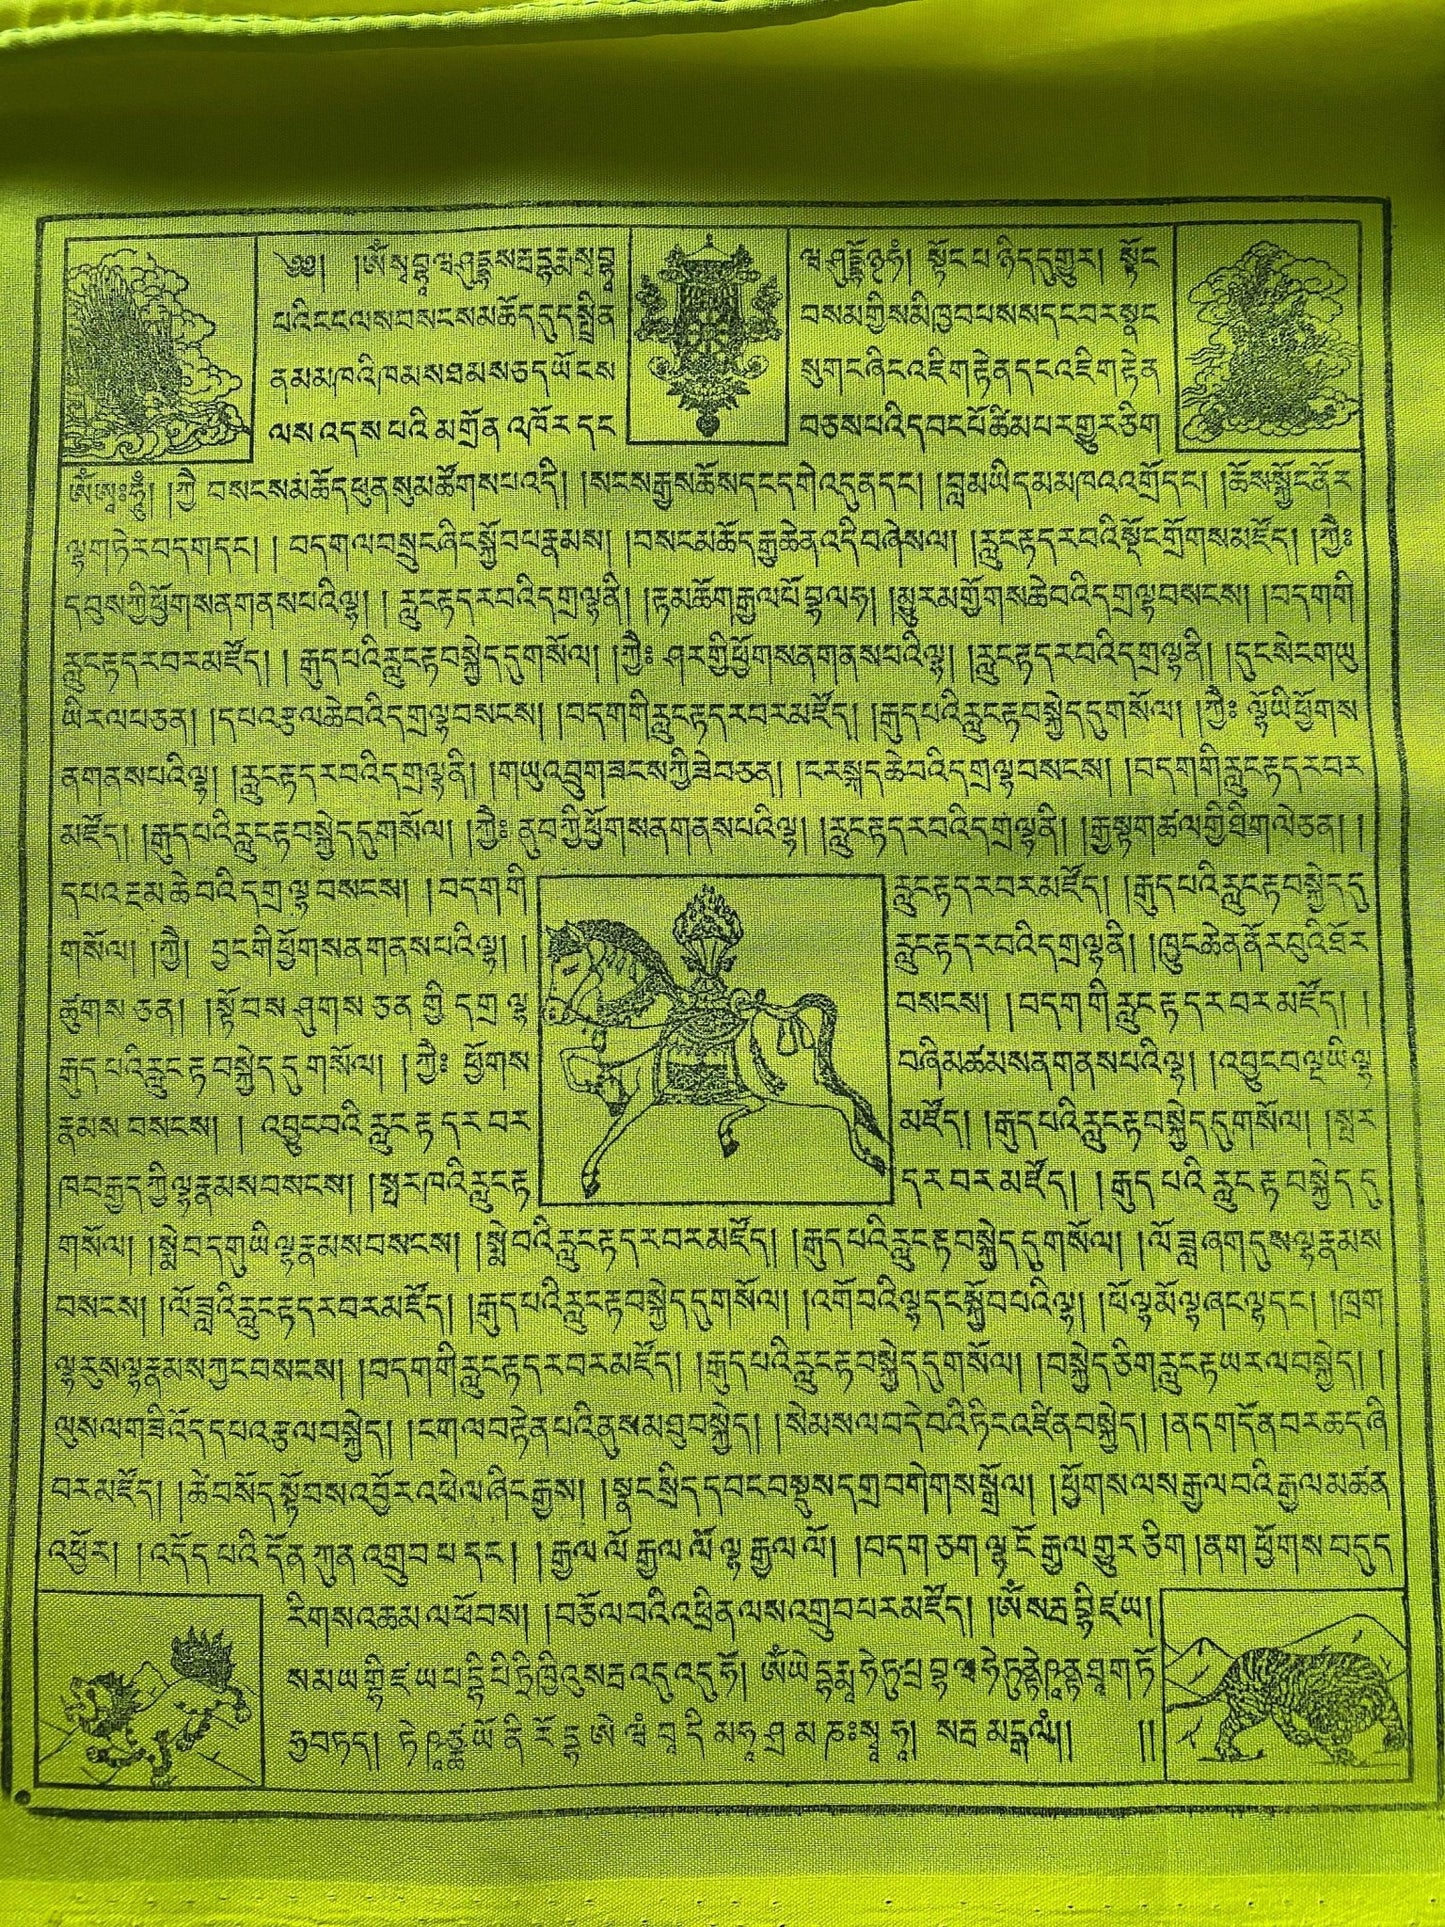 ༄༅། །ཨོཾ་སྭ་བྷཱ་ཝ་ཤུདྡྷ་སརྦ་དྷརྨ་སྭ་བྷཱ་
ཝ་ཤུདྡྷོ྅ཧཾ། སྟོང་པ་ཉིད་དུ་གྱུར། སྟོང་
པའི་ངང་ལས་བསངས་མཆོད་དུད་སྤྲིན་
བསམ་གྱིས་མི་ཁྱབ་པ་སས་དང་བར་སྣང་
ནམ་མཁའི་ཁམས་ཐམས་ཅད་ཡོངས་
སུ་གང་ཞིང་འཇིག་རྟེན་དང་འཇིག་རྟེན་
ལས་འདས་པའི་མགྲོན་འཁོར་དང་
བཅས་པའི་དབང་པོ་ཚིམ་པར་གྱུར་ཅིག
ཨོཾ་ཨཱཿཧཱུྃ། །ཀྱཻ་ བསངས་མཆོད་ཕུན་སུམ་ཚོགས་པ་འདི། །སངས་རྒྱས་ཆོས་དང་དགེ་འདུན་དང་། །བླ་མ་ཡི་དམ་མཁའ་འགྲོ་དང་། །ཆོས་སྐྱོང་ནོར་
ལྷ་གཏེར་བདག་དང་། །བདག་ལ་བསྲུང་ཞིང་སྐྱོབ་པ་རྣམས། །བསང་མཆོད་རྒྱ་ཆེན་འདི་བཞེས་ལ། །རླུང་རྟ་དར་བའི་སྡོང་གྲོགས་མཛོད། །ཀྱཻཿ
དབུས་ཀྱི་ཕྱོགས་ན་གནས་པའི་ལྷ། །རླུང་རྟ་དར་བའི་དགྲ་ལྷ་ནི། །རྟ་མཆོག་རྒྱལ་པོ་བྷ་ལ་ཧ། །མྱུར་མགྱོགས་ཆེ་བའི་དགྲ་ལྷ་བསངས། །བདག་གི་
རླུང་རྟ་དར་བར་མཛོད། །རྒུད་པའི་རླུང་རྟ་བསྐྱེད་དུ་གསོལ། །ཀྱཻཿ ཤར་གྱི་ཕྱོགས་ན་གནས་པའི་ལྷ། །རླུང་རྟ་དར་བའི་དགྲ་ལྷ་ནི། །དུང་སེང་གཡུ་
ཡི་རལ་པ་ཅན། །དཔའ་རྩལ་ཆེ་བའི་དགྲ་ལྷ་བསངས། །བདག་གི་རླུང་རྟ་དར་བར་མཛོད། །རྒུད་པའི་རླུང་རྟ་བསྐྱེད་དུ་གསོལ། །ཀྱཻཿ ལྷོ་ཡི་ཕྱོགས་
ན་གནས་པའི་ལྷ། །རླུང་རྟ་དར་བའི་དགྲ་ལྷ་ནི། །གཡུ་འབྲུག་ཟངས་ཀྱི་ཟེ་བ་ཅན། །ངར་སྐད་ཆེ་བའི་དགྲ་ལྷ་བསངས། །བདག་གི་རླུང་རྟ་དར་བར་
མཛོད། །རྒུད་པའི་རླུང་རྟ་བསྐྱེད་དུ་གསོལ། །ཀྱཻཿ ནུབ་ཀྱི་ཕྱོགས་ན་གནས་པའི་ལྷ། །རླུང་རྟ་དར་བའི་དགྲ་ལྷ་ནི། །རྒྱ་སྟག་ཚལ་གྱི་ཐིག་ལེ་ཅན། །
དཔའ་ངམ་ཆེ་བའི་དགྲ་ལྷ་བསངས། །བདག་གི་
རླུང་རྟ་དར་བར་མཛོད། །རྒུད་པའི་རླུང་རྟ་བསྐྱེད་དུ་
གསོལ། །ཀྱཻ། བྱང་གི་ཕྱོགས་ན་གནས་པའི་ལྷ། །
རླུང་རྟ་དར་བའི་དགྲ་ལྷ་ནི། །ཁྱུང་ཆེན་ནོར་བུའི་ཐོར་
ཚུགས་ཅན། །སྟོབས་ཤུགས་ཅན་གྱི་དགྲ་ལྷ་
བསངས། །བདག་གི་རླུང་རྟ་དར་བར་མཛོད། །
རྒུད་པའི་རླུང་རྟ་བསྐྱེད་དུ་གསོལ། །ཀྱཻཿ ཕྱོགས་
བཞི་མཚམས་ན་གནས་པའི་ལྷ། །འབྱུང་བ་ལྔ་ཡི་ལྷ་
རྣམས་བསངས། །འབྱུང་བའི་རླུང་རྟ་དར་བར་
མཛོད། །རྒུད་པའི་རླུང་རྟ་བསྐྱེད་དུ་གསོལ། །སྤར་
ཁ་བརྒྱད་ཀྱི་ལྷ་རྣམས་བསངས། །སྤར་ཁའི་རླུང་རྟ་
དར་བར་མཛོད། །རྒུད་པའི་རླུང་རྟ་བསྐྱེད་དུ་
གསོལ། །སྨེ་བ་དགུ་ཡི་ལྷ་རྣམས་བསངས། །སྨེ་བའི་རླུང་རྟ་དར་བར་མཛོད། །རྒུད་པའི་རླུང་རྟ་བསྐྱེད་དུ་གསོལ། །ལོ་ཟླ་ཞག་དུས་ལྷ་རྣམས་
བསངས། །ལོ་ཟླའི་རླུང་རྟ་དར་བར་མཛོད། །རྒུད་པའི་རླུང་རྟ་བསྐྱེད་དུ་གསོལ། །འགོ་བའི་ལྷ་དང་སྐྱོབ་པའི་ལྷ། །ཕོ་ལྷ་མོ་ལྷ་ཞང་ལྷ་དང་། །ཁྲག་
ལྷ་རུས་ལྷ་རྣམས་ཀྱང་བསངས། །བདག་གི་རླུང་རྟ་དར་བར་མཛོད། །རྒུད་པའི་རླུང་རྟ་བསྐྱེད་དུ་གསོལ། །བསྐྱེད་ཅིག་རླུང་རྟ་ཡར་ལ་བསྐྱེད། །
ལུས་ལ་གཟི་འོད་དཔའ་རྩལ་བསྐྱེད། །ངག་ལ་བརྟེན་པའི་ནུས་མཐུ་བསྐྱེད། །སེམས་ལ་བདེ་བའི་ཏིང་འཛིན་བསྐྱེད། །ནད་གདོན་བར་ཆད་ཞི་
བར་མཛོད། །ཚེ་བསོད་སྟོབས་འབྱོར་འཕེལ་ཞིང་རྒྱས། །སྣང་སྲིད་དབང་བསྡུས་དགྲ་བགེགས་སྒྲོལ། །ཕྱོགས་ལས་རྒྱལ་བའི་རྒྱལ་མཚན་
འཕྱོར། །འདོད་པའི་དོན་ཀུན་འགྲུབ་པ་དང་། །རྒྱལ་ལོ་རྒྱལ་ལོ་ལྷ་རྒྱལ་ལོ། །བདག་ཅག་ལྷ་ངོ་རྒྱལ་གྱུར་ཅིག །ནག་ཕྱོགས་བདུད་
རིགས་འཆམ་ལ་ཕོབས། །བཅོལ་བའི་འཕྲིན་ལས་འགྲུབ་པར་མཛོད། །ཨོཾ་སརྦ་